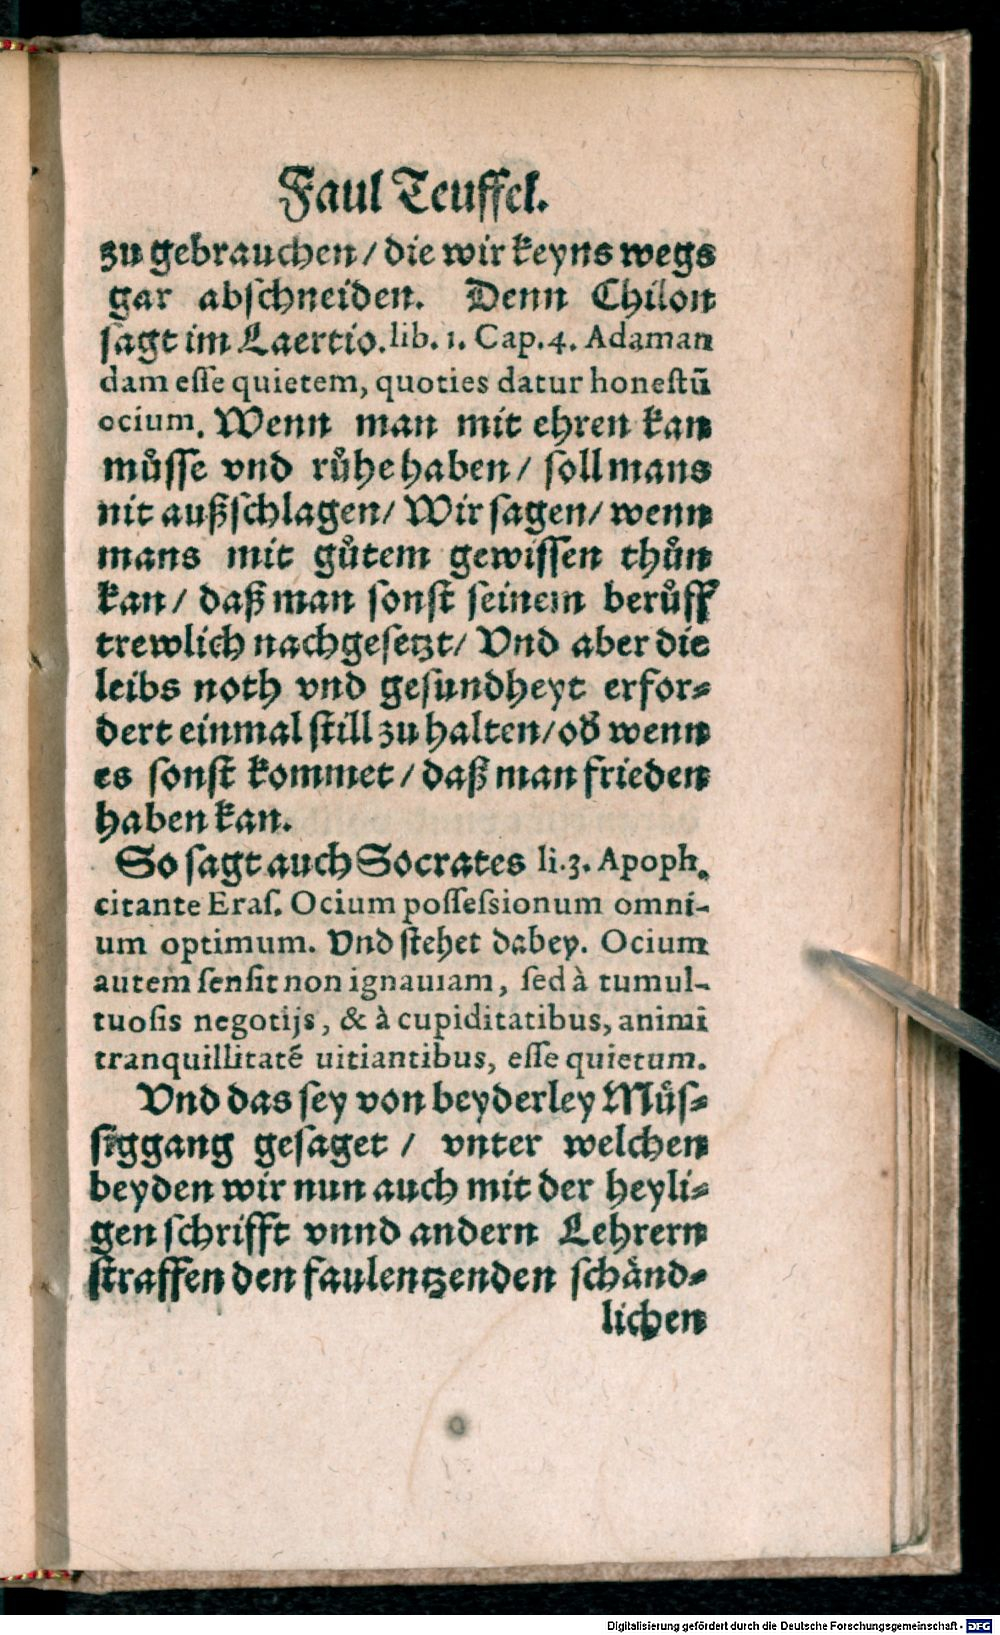 Faul Teuffel.
zu gebrauchen / die wir keyns wegs
gar abschneiden. Denn Chilon
sagt im Laertio. lib. 1. Cap. 4. Adaman
dam esse quietem, quoties datur honestū
ocium. Wenn man mit ehren kan
můsse vnd růhe haben / soll mans
nit außschlagen / Wir sagen / wenn
mans mit gůtem gewissen thůn
kan / daß man sonst seinem berůff
trewlich nachgesetzt / Vnd aber die
leibs noth vnd gesundheyt erfor-
dert einmal still zu halten / od̕ wenn
es sonst kommet / daß man frieden
haben kan.
So sagt auch Socrates li. 3. Apoph.
citante Eras. Ocium possessionum omni-
um optimum. Vnd stehet dabey. Ocium
autem sensit non ignauiam, sed à tumul-
tuosis negotijs, & à cupiditatibus, animi
tranquillitatē uitiantibus, esse quietum.
Vnd das sey von beyderley Můs-
siggang gesaget / vnter welchen
beyden wir nun auch mit der heyli-
gen schrifft vnnd andern Lehrern
straffen den faulentzenden schänd-
lichen
Digitalisierung gefördert durch die Deutsche Forschungsgemeinschaft - DFG